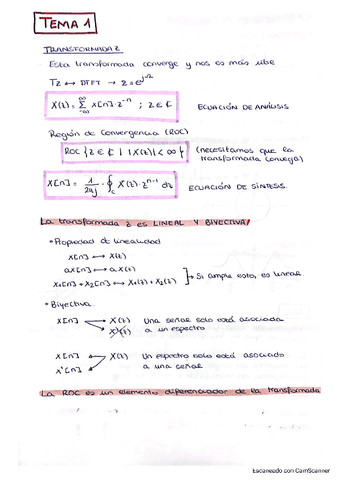 TEMA 1
TRANSFORMADA Z
Esta transformada converge y nos es más útil
Tz ↔ DTFT → z = e^jΩ
X(z) = Σ_{-∞}^{∞} x[n]·z^-n ; z ∈ ℂ ECUACIÓN DE ANÁLISIS
Región de Convergencia (ROC)
ROC { z ∈ ℂ | |X(z)| < ∞ } (necesitamos que la
transformada converja)
x[n] = 1/2πj · ∮_C X(z)·z^n-1 dz ECUACIÓN DE SÍNTESIS.
La transformada z es LINEAL Y BIYECTIVA
• Propiedad de linealidad
x[n] ↔ X(z)
ax[n] ↔ a X(z)
x1[n] + x2[n] ↔ X1(z) + X2(z) Si cumple esto, es lineal
• Biyectiva
x[n] X(z) Una señal solo está asociada
X'(z) a un espectro
x[n] X(z) Un espectro solo está asociado
x'[n] a una señal
La ROC es un elemento diferenciador de la transformada
Escaneado con CamScanner